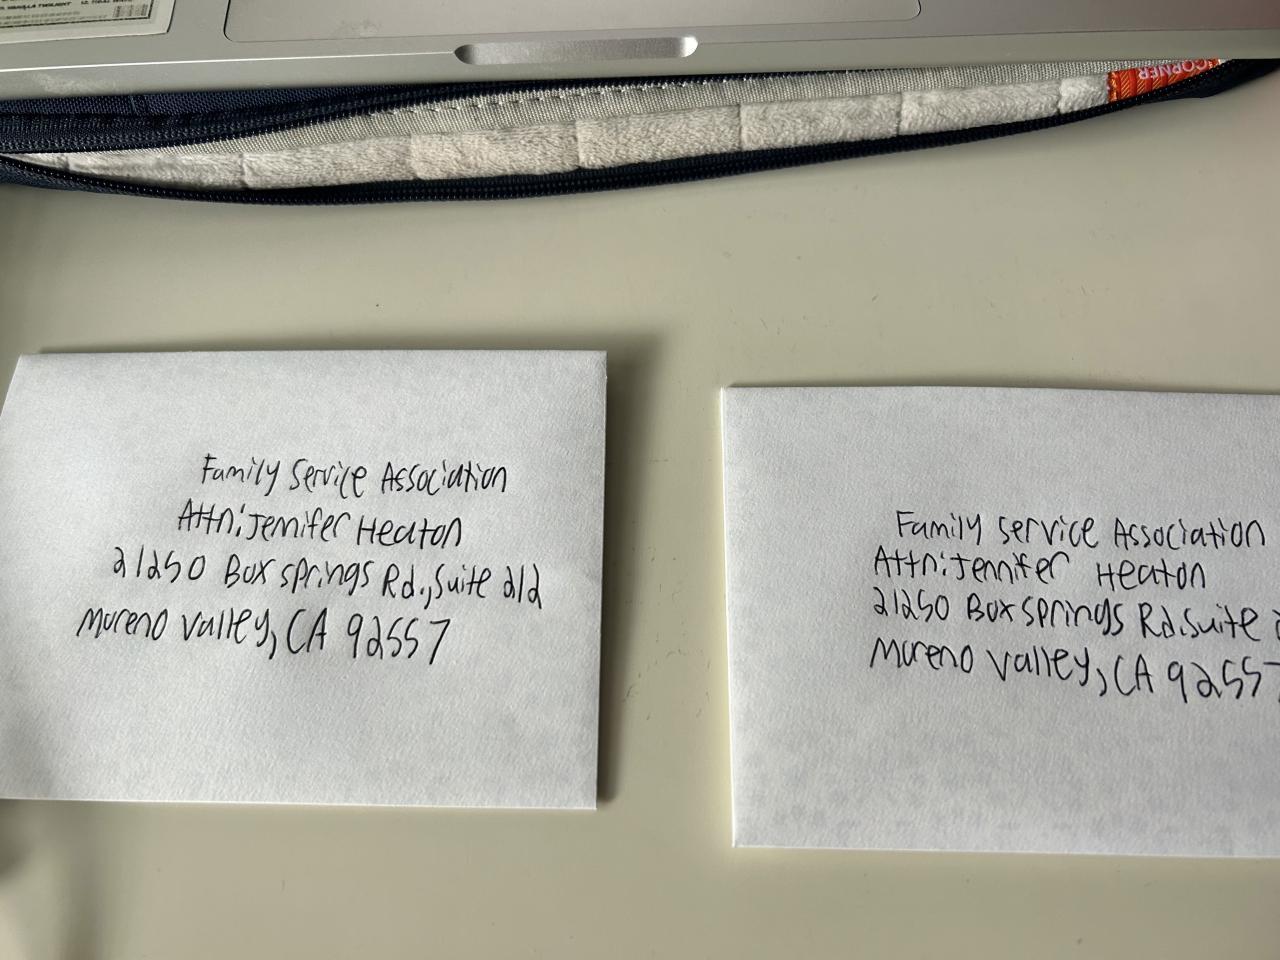 VANILLA TWILIGHT
CORNER
Family Service Association
Attn: Jennifer Heaton
21250 Box Springs Rd., Suite 212
Moreno Valley, CA 92557
Family Service Association
Attn: Jennifer Heaton
21250 Box Springs Rd. Suite
Moreno Valley, CA 92557